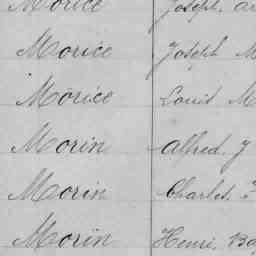 Morice Joseph, Ar
Morice Joseph M
Morice Louis M
Morin Alfred. J
Morin Charles.
Morin Henri, Ba